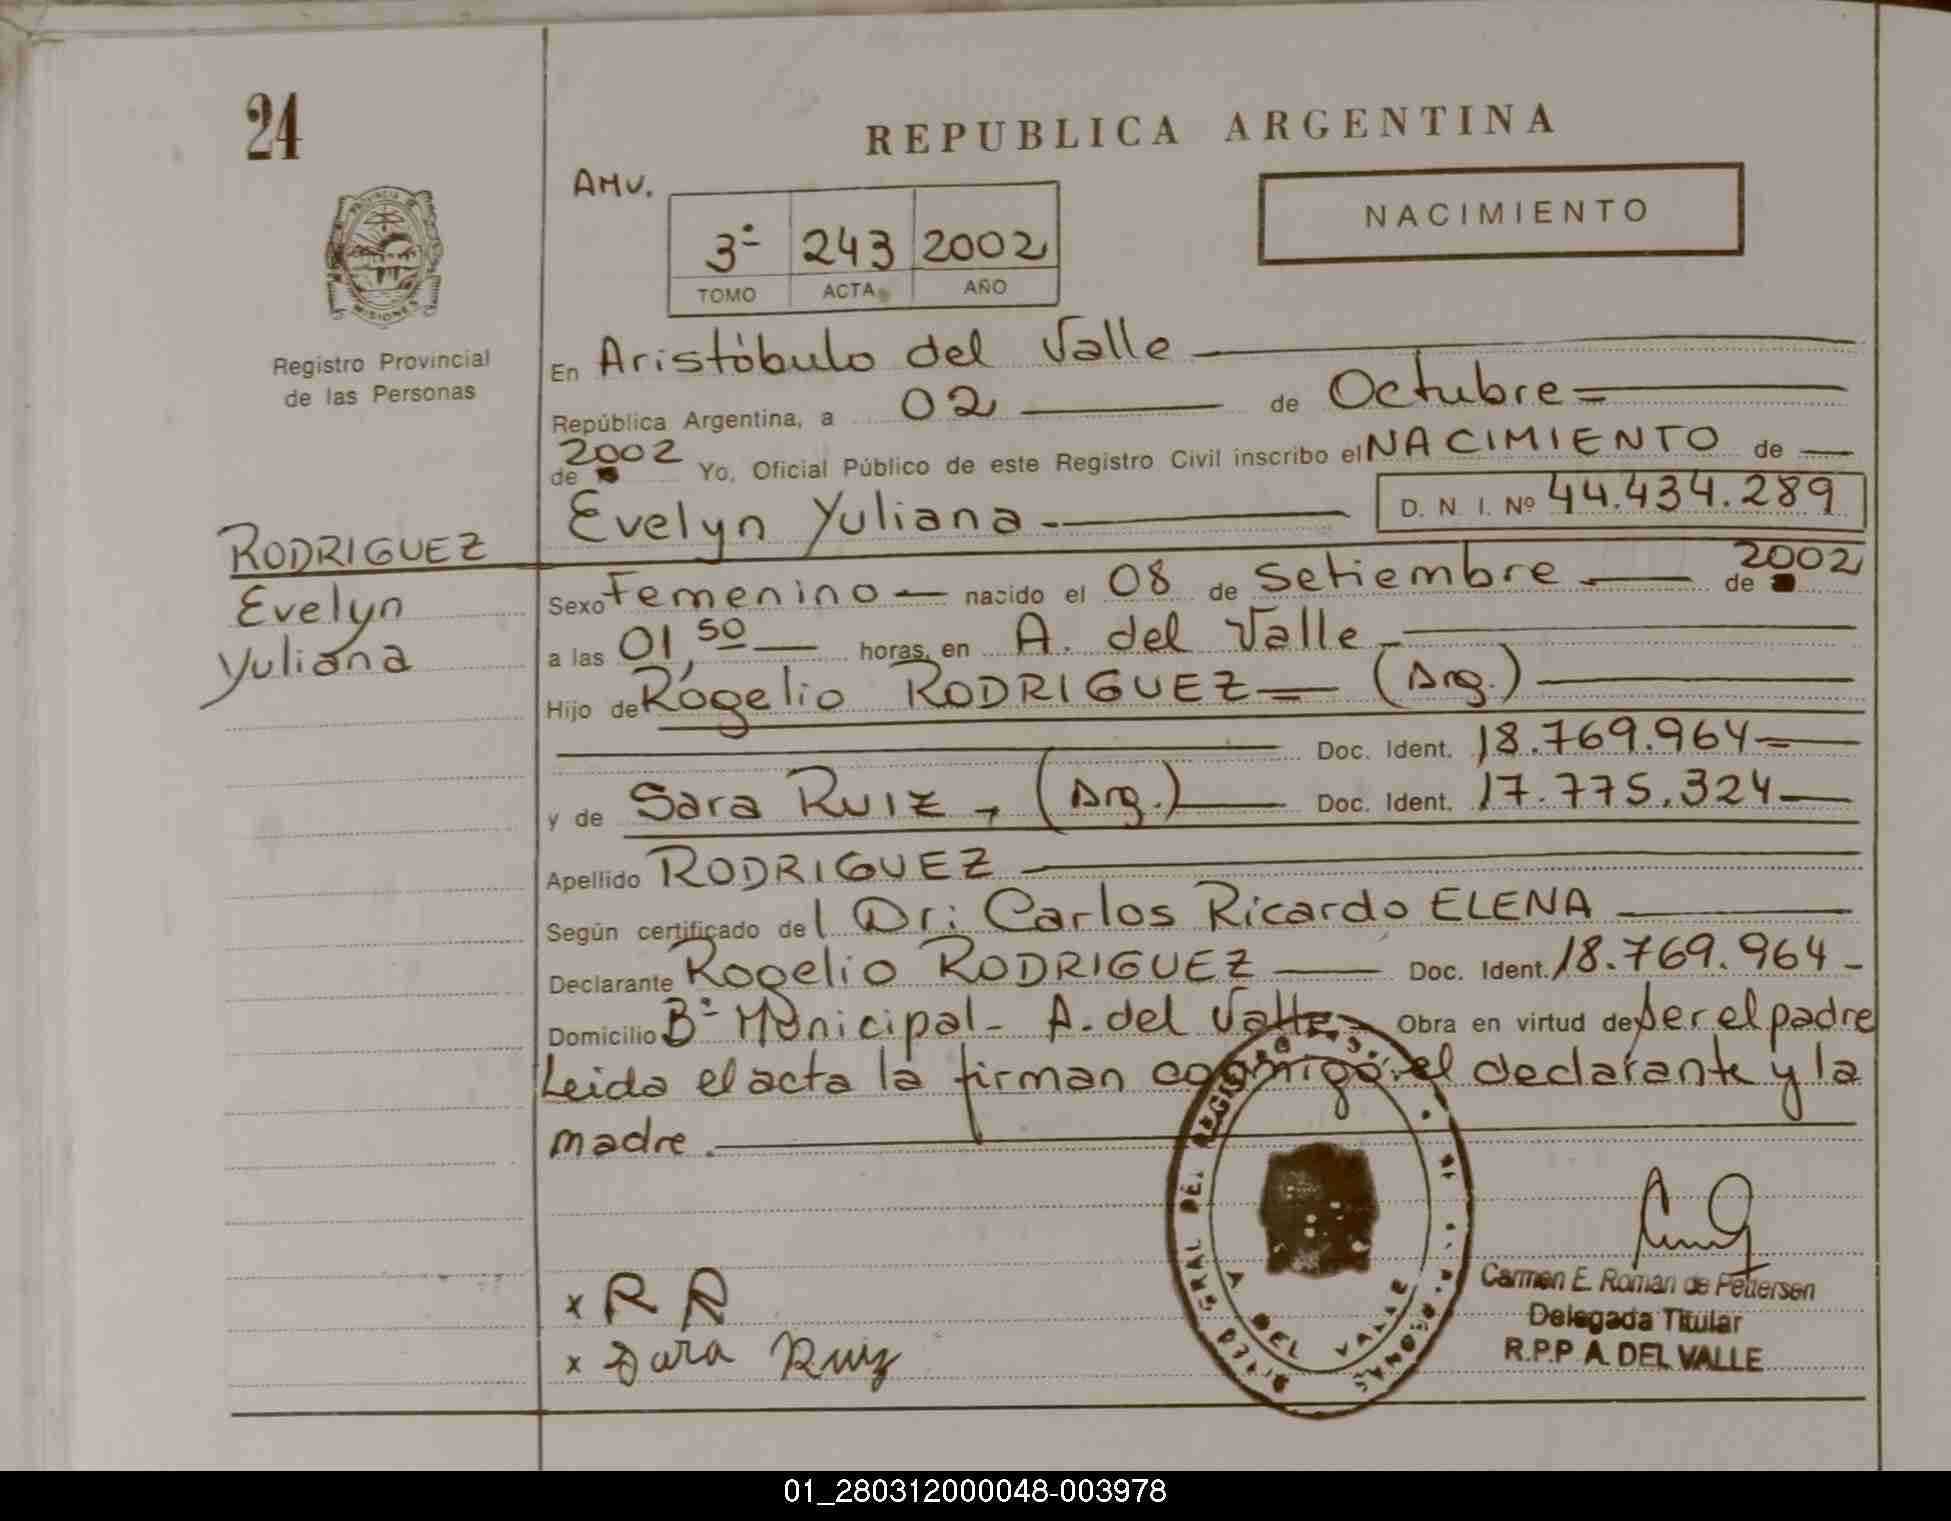 24
REPUBLICA ARGENTINA
AMV.
NACIMIENTO
3º 243 2002
TOMO ACTA AÑO
PROVINCIA DE
MISIONES
Registro Provincial
de las Personas
En Aristóbulo del Valle
República Argentina, a 02 de Octubre
de 2002 Yo, Oficial Público de este Registro Civil inscribo el NACIMIENTO de
Evelyn Yuliana D. N. I. Nº 44.434.289
RODRIGUEZ
Evelyn
Yuliana
Sexo Femenino nacido el 08 de Setiembre de 2002
a las 01,50 horas, en A. del Valle
Hijo de Rogelio RODRIGUEZ (Arg.)
Doc. Ident. 18.769.964
y de Sara RUIZ, (Arg.) Doc. Ident. 17.775.324
Apellido RODRIGUEZ
Según certificado del Dr: Carlos Ricardo ELENA
Declarante Rogelio RODRIGUEZ Doc. Ident. 18.769.964
Domicilio Bº Municipal - A. del Valle Obra en virtud de ser el padre
Leida el acta la firman conmigo el declarante y la
madre.
x R R
x Sara Ruiz
A DEL VALLE
Carmen E. Roman de Pettersen
Delegada Titular
R.P.P A. DEL VALLE
01_280312000048-003978